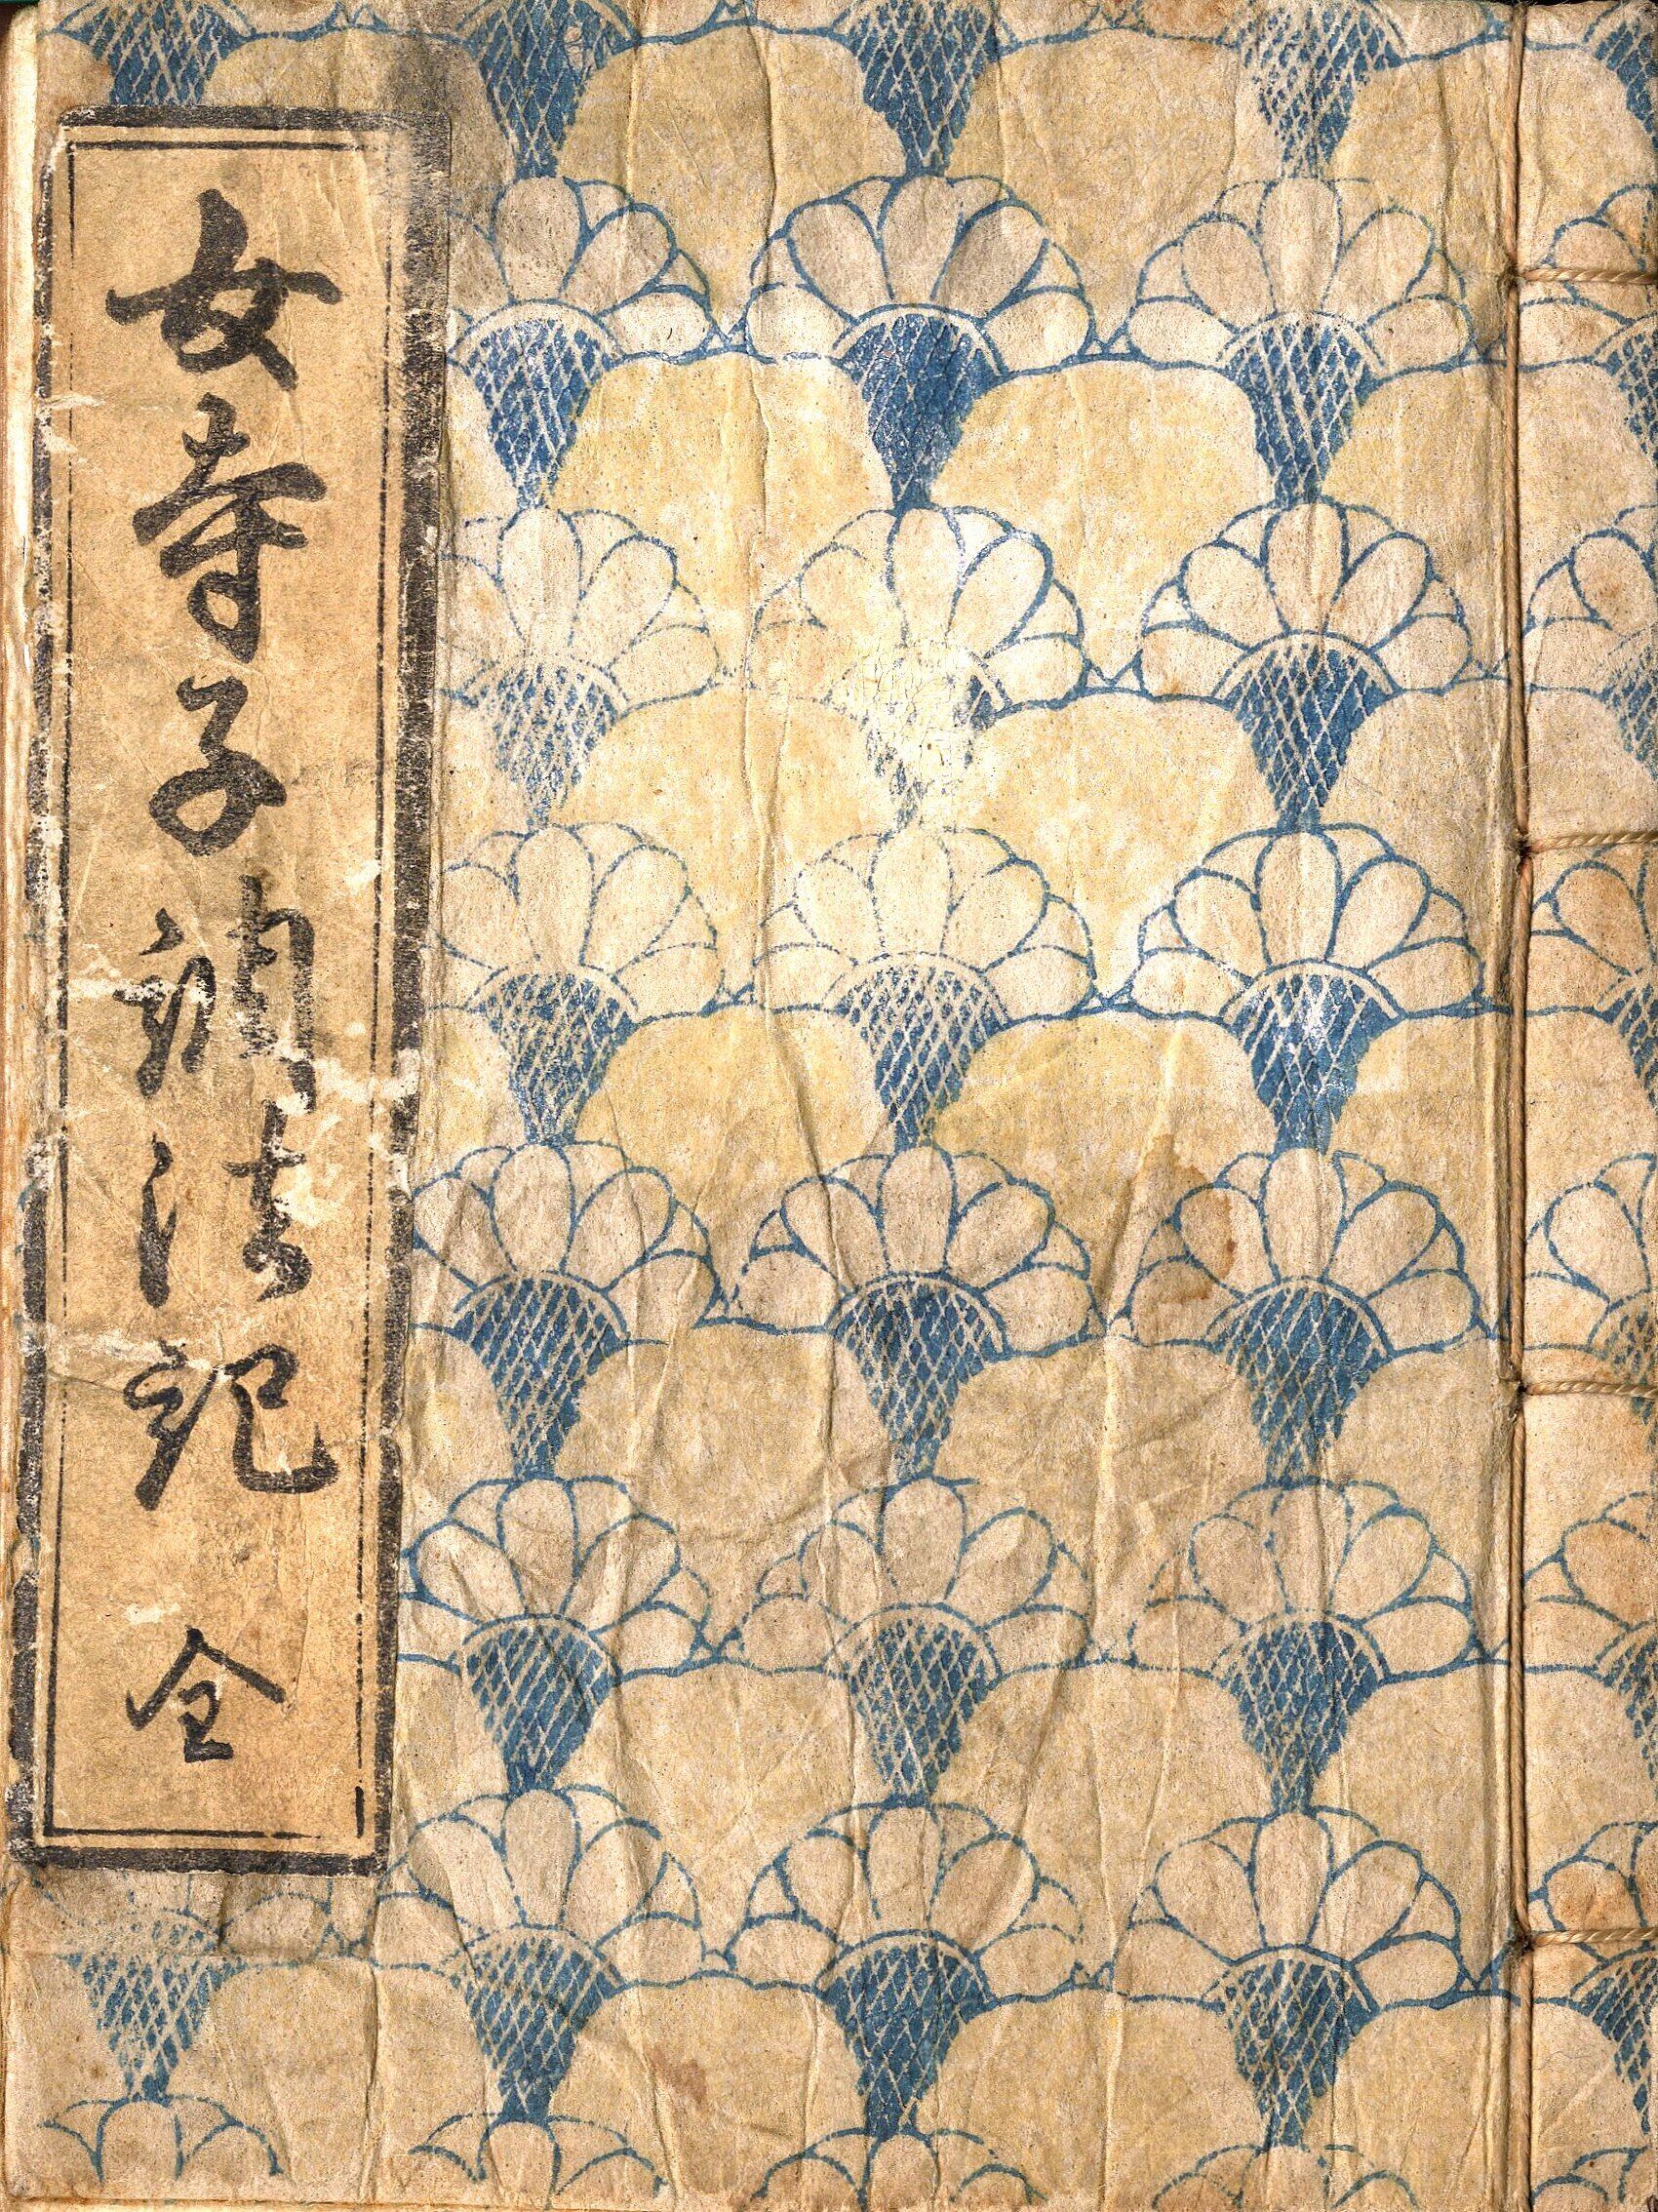 女寺子調法記 全